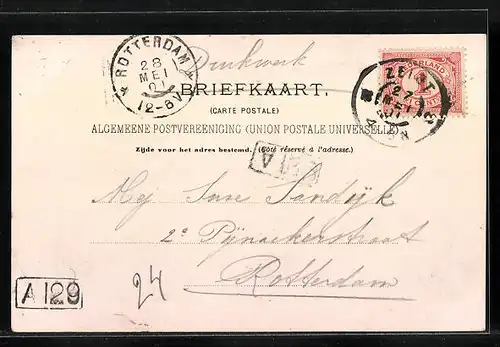 ROTTERDAM
28
MEI
12-6V
Drukwerk
NEDERLAND
CENT
ZEIST
27
MEI
01
BRIEFKAART.
(CARTE POSTALE)
ALGEMEENE POSTVEREENIGING (UNION POSTALE UNIVERSELLE)
Zijde voor het adres bestemd. (Côté réservé à l'adresse.)
Mej Sandijk
2e Pijnackerstraat
Rotterdam
24
A129